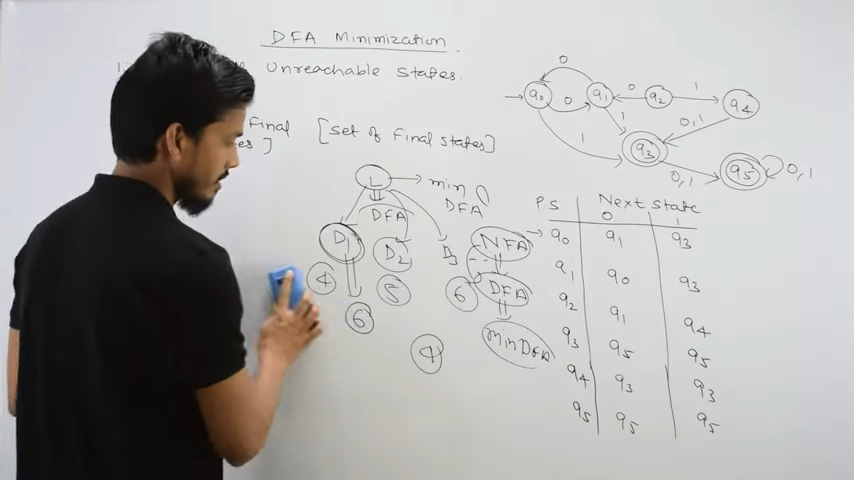 DFA Minimization
Unreachable States.
Final [set of Final states]
es]
L → min DFA
DFA
D1 D2 D3
4 5 6
6
NFA
DFA
min DFA
4
q0 q1 q2 q4
q3 q5
0 0 0 1
1 1 0,1
0,1 0,1
PS Next State
0 1
→ q0 q1 q3
q1 q0 q3
q2 q1 q4
q3 q5 q5
q4 q3 q3
q5 q5 q5